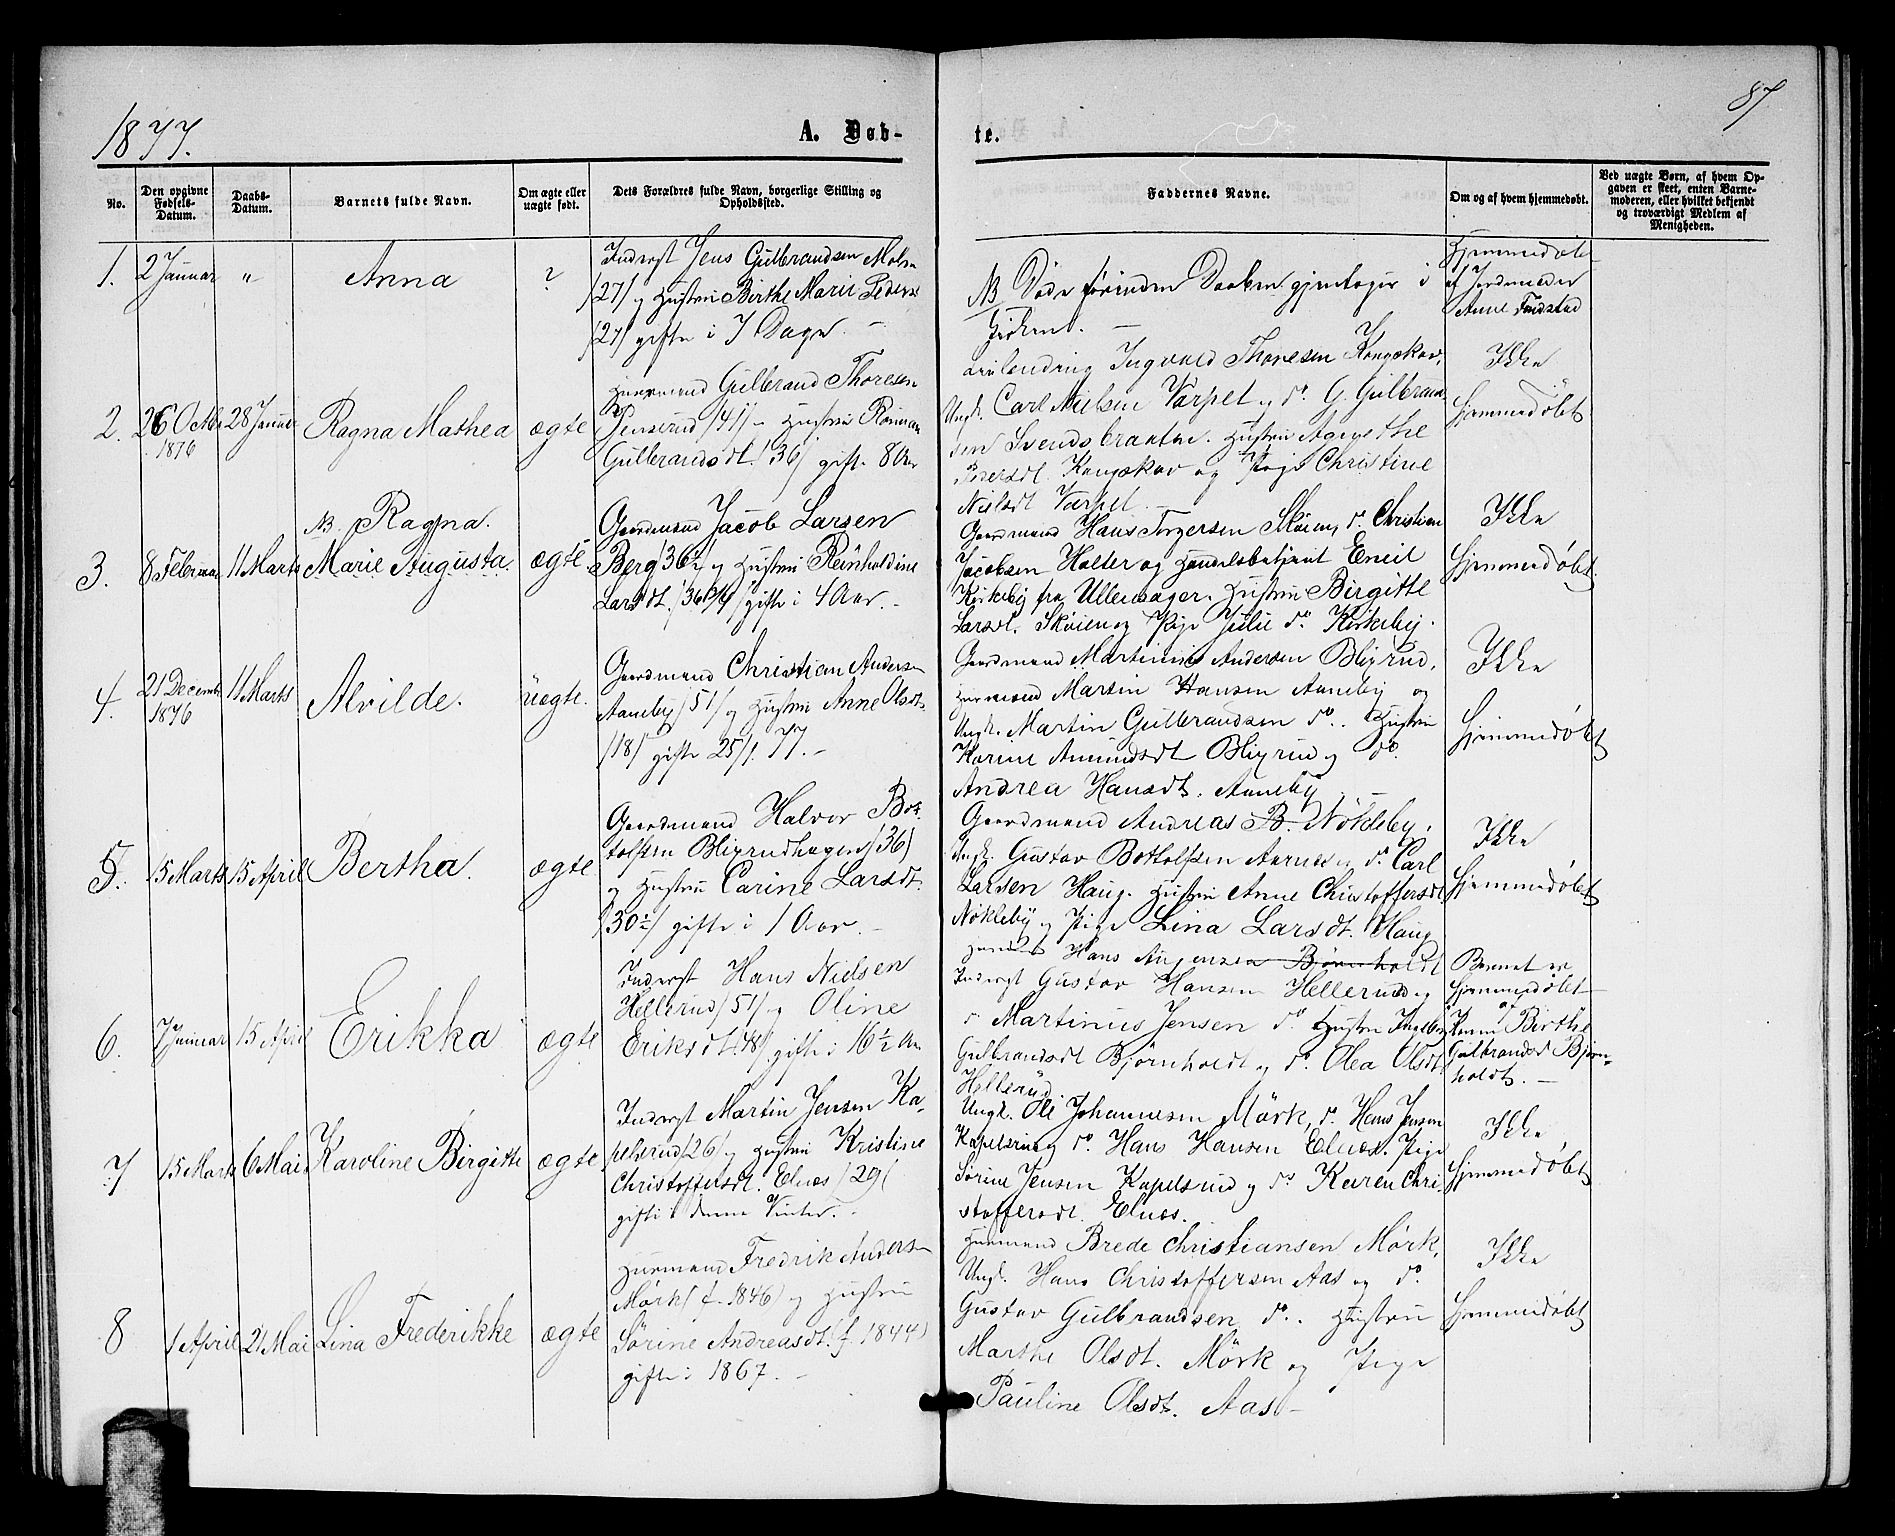 1877.
A. Døb-
te.
87
No.
Den opgivne
Fødsels-
Datum.
Daabs-
Datum.
Barnets fulde Navn.
Om ægte eller
uægte født.
Dets Forældres fulde Navn, borgerlige Stilling og
Opholdssted.
Faddernes Navne.
Om og af hvem hjemmedøbt.
Ved uægte Børn, af hvem Op-
gaven er skeet, enten Barne-
moderen, eller hvilket bekjendt
og troværdigt Medlem af
Menigheden.
1.
2 Januar
"
Anna
?
Inderst Jens Gulbrandsen
/27/ og Hustru Birthe Marie Peders
/27/ gifte i 7 Dage. –
NB Døde førinden Daaben gjentoges i
Kirken. –
Hjemmedøbt
af Jordmoder
Anne
2.
26 Octbr
1876
28 Januar
Ragna Mathea
ægte
Huusmand Gulbrand Thoresen
Jenserud /41/ – Hustru
Gulbrandsdt. /36/ gift. 8 Aar
Ingvald Thoresen Kongskov,
Ungk. Carl Nielsen Varpet og do. G. Gulbrand-
sen Svendsbraathe. Hustru Agnethe
Kongskov og Pige Christine
Nielsdt Varpet. –
Ikke
hjemmedøbt
3.
8 Februar
11 Marts
NB. Ragna.
Marie Augusta.
ægte
Gaardmand Jacob Larsen
Berg /36½/ og Hustru Reinholdine
Larsdt. gifte i 4 Aar. –
Gaardmand Hans Torgersen Skøien, do. Christian
Jacobsen Holter og Handelsbetjent Emil
Kirkeby fra Ullensager. Hustru Birgitte
Larsdt. Skøien og Pige Julie do. Kirkeby.
Ikke
hjemmedøbt.
4.
21 Decemb
1876
11 Marts
Alvilde.
uægte.
Gaardmand Christian Andersen
Aaneby /51/ og Hustru Anne Olsdt.
/18/ gifte 25/1. 77. –
Gaardmand Martinius Andersen Bligrud,
Huusmand Martin Hansen Aaneby og
Ungk. Martin Gulbrandsen do. Hustru
Karine Amundsdt Bligrud og do.
Andrea Hansdt. Aaneby. –
Ikke
hjemmedøbt
5.
15 Marts
15 April
Bertha.
ægte
Gaardmand Halvor Bot-
tolfsen Bligrudhagen /36/
og Hustru Carine Larsdt.
/30½/ gifte i 1 Aar. –
Gaardmand Andreas B. Nökleby,
Ungk. Gustav Bottolfsen Aarnes og do. Carl
Larsen Haug. Hustru Anne Christoffersdt
Nökleby og Pige Lina Larsdt. Haug
Ikke
hjemmedøbt
6.
7 Januar
15 April
Erikka
ægte
Inderst Hans Nielsen
Hellerud /51/ og Oline
Eriksdt. /48/ gifte i 16½ Aar
Hans Björnholdt
Inderst Gustav Hansen Hellerud og
do Martinus Jensen do. Hustru Ingeborg
Gulbrandsdt Björnholdt og do. Olea Olsdt
Hellerud.
Barnet er
hjemmedøbt
af
Kone Birthe
Gulbrandsd Bjørn-
holdt. –
7
15 Marts
6 Mai
Karoline Birgitte
ægte
Inderst Martin Jensen Ka-
pelsrud /26/ og Hustru Kristine
Christoffersdt. Elnæs /29/
gifte i denne Vinter. –
Ungk. Ole Johannesen Mörk, do. Hans Jensen
Kapelsrud og do. Hans Hansen Elnæs. Pige
Sørine Jensen Kapelsrud og do. Karen Chri-
stoffersdt. Elnæs.
Ikke
hjemmedøbt
8
1 April
21 Mai
Lina Frederikke
ægte
Huusmand Fredrik Andersen
Mörk (f. 1846) og Hustru
Sørine Andreasdt. (f. 1844)
gifte i 1867. –
Huusmand Brede Christiansen Mörk,
Ungk. Hans Christoffersen Aas og do.
Gustav Gulbrandsen do. Hustru
Marthe Olsdt. Mörk og Pige
Pauline Olsdt. Aas –
Ikke
hjemmedøbt